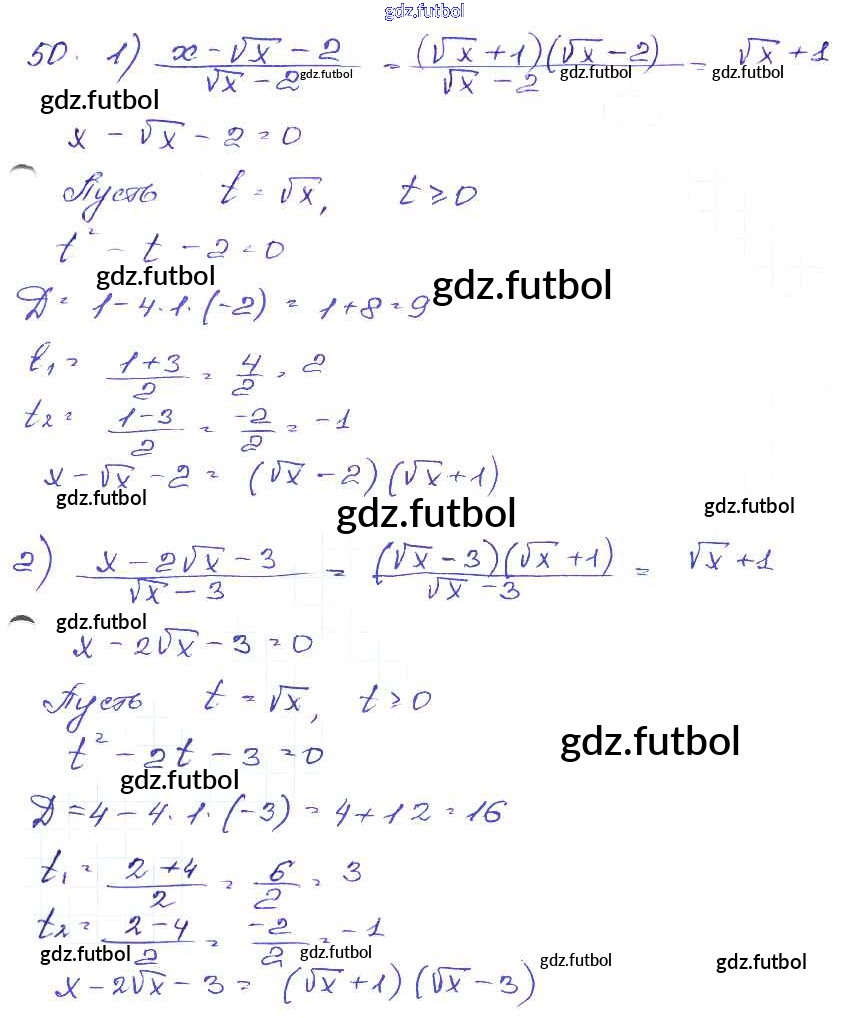 gdz.futbol
50. 1) (x - √x - 2)/(√x - 2) = ((√x + 1)(√x - 2))/(√x - 2) = √x + 1
gdz.futbol gdz.futbol gdz.futbol
gdz.futbol
x - √x - 2 = 0
Пусть t = √x, t ≥ 0
t² - t - 2 = 0
gdz.futbol gdz.futbol
Д = 1 - 4·1·(-2) = 1 + 8 = 9
t₁ = (1+3)/2 = 4/2 = 2
t₂ = (1-3)/2 = -2/2 = -1
x - √x - 2 = (√x - 2)(√x + 1)
gdz.futbol gdz.futbol gdz.futbol
2) (x - 2√x - 3)/(√x - 3) = ((√x - 3)(√x + 1))/(√x - 3) = √x + 1
gdz.futbol
x - 2√x - 3 = 0
Пусть t = √x, t ≥ 0
t² - 2t - 3 = 0
gdz.futbol gdz.futbol
Д = 4 - 4·1·(-3) = 4 + 12 = 16
t₁ = (2+4)/2 = 6/2 = 3
t₂ = (2-4)/2 = -2/2 = -1
gdz.futbol gdz.futbol gdz.futbol gdz.futbol
x - 2√x - 3 = (√x + 1)(√x - 3)